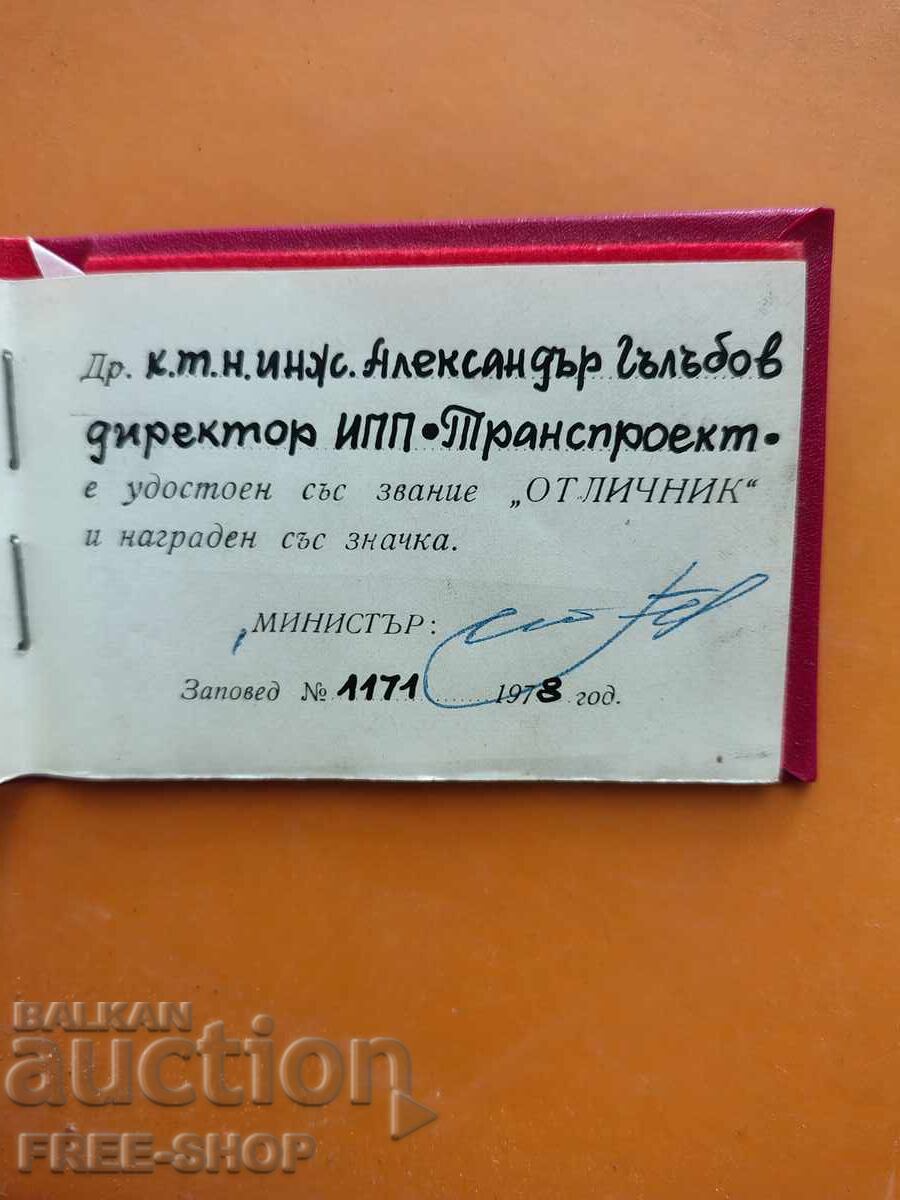 Др. к.т.н. инж. Александър Гълъбов
директор ИПП •Транспроект•
е удостоен със звание „ОТЛИЧНИК“
и награден със значка.
МИНИСТЪР:
Заповед № 1171 1978 год.
BALKAN
auction
FREE-SHOP